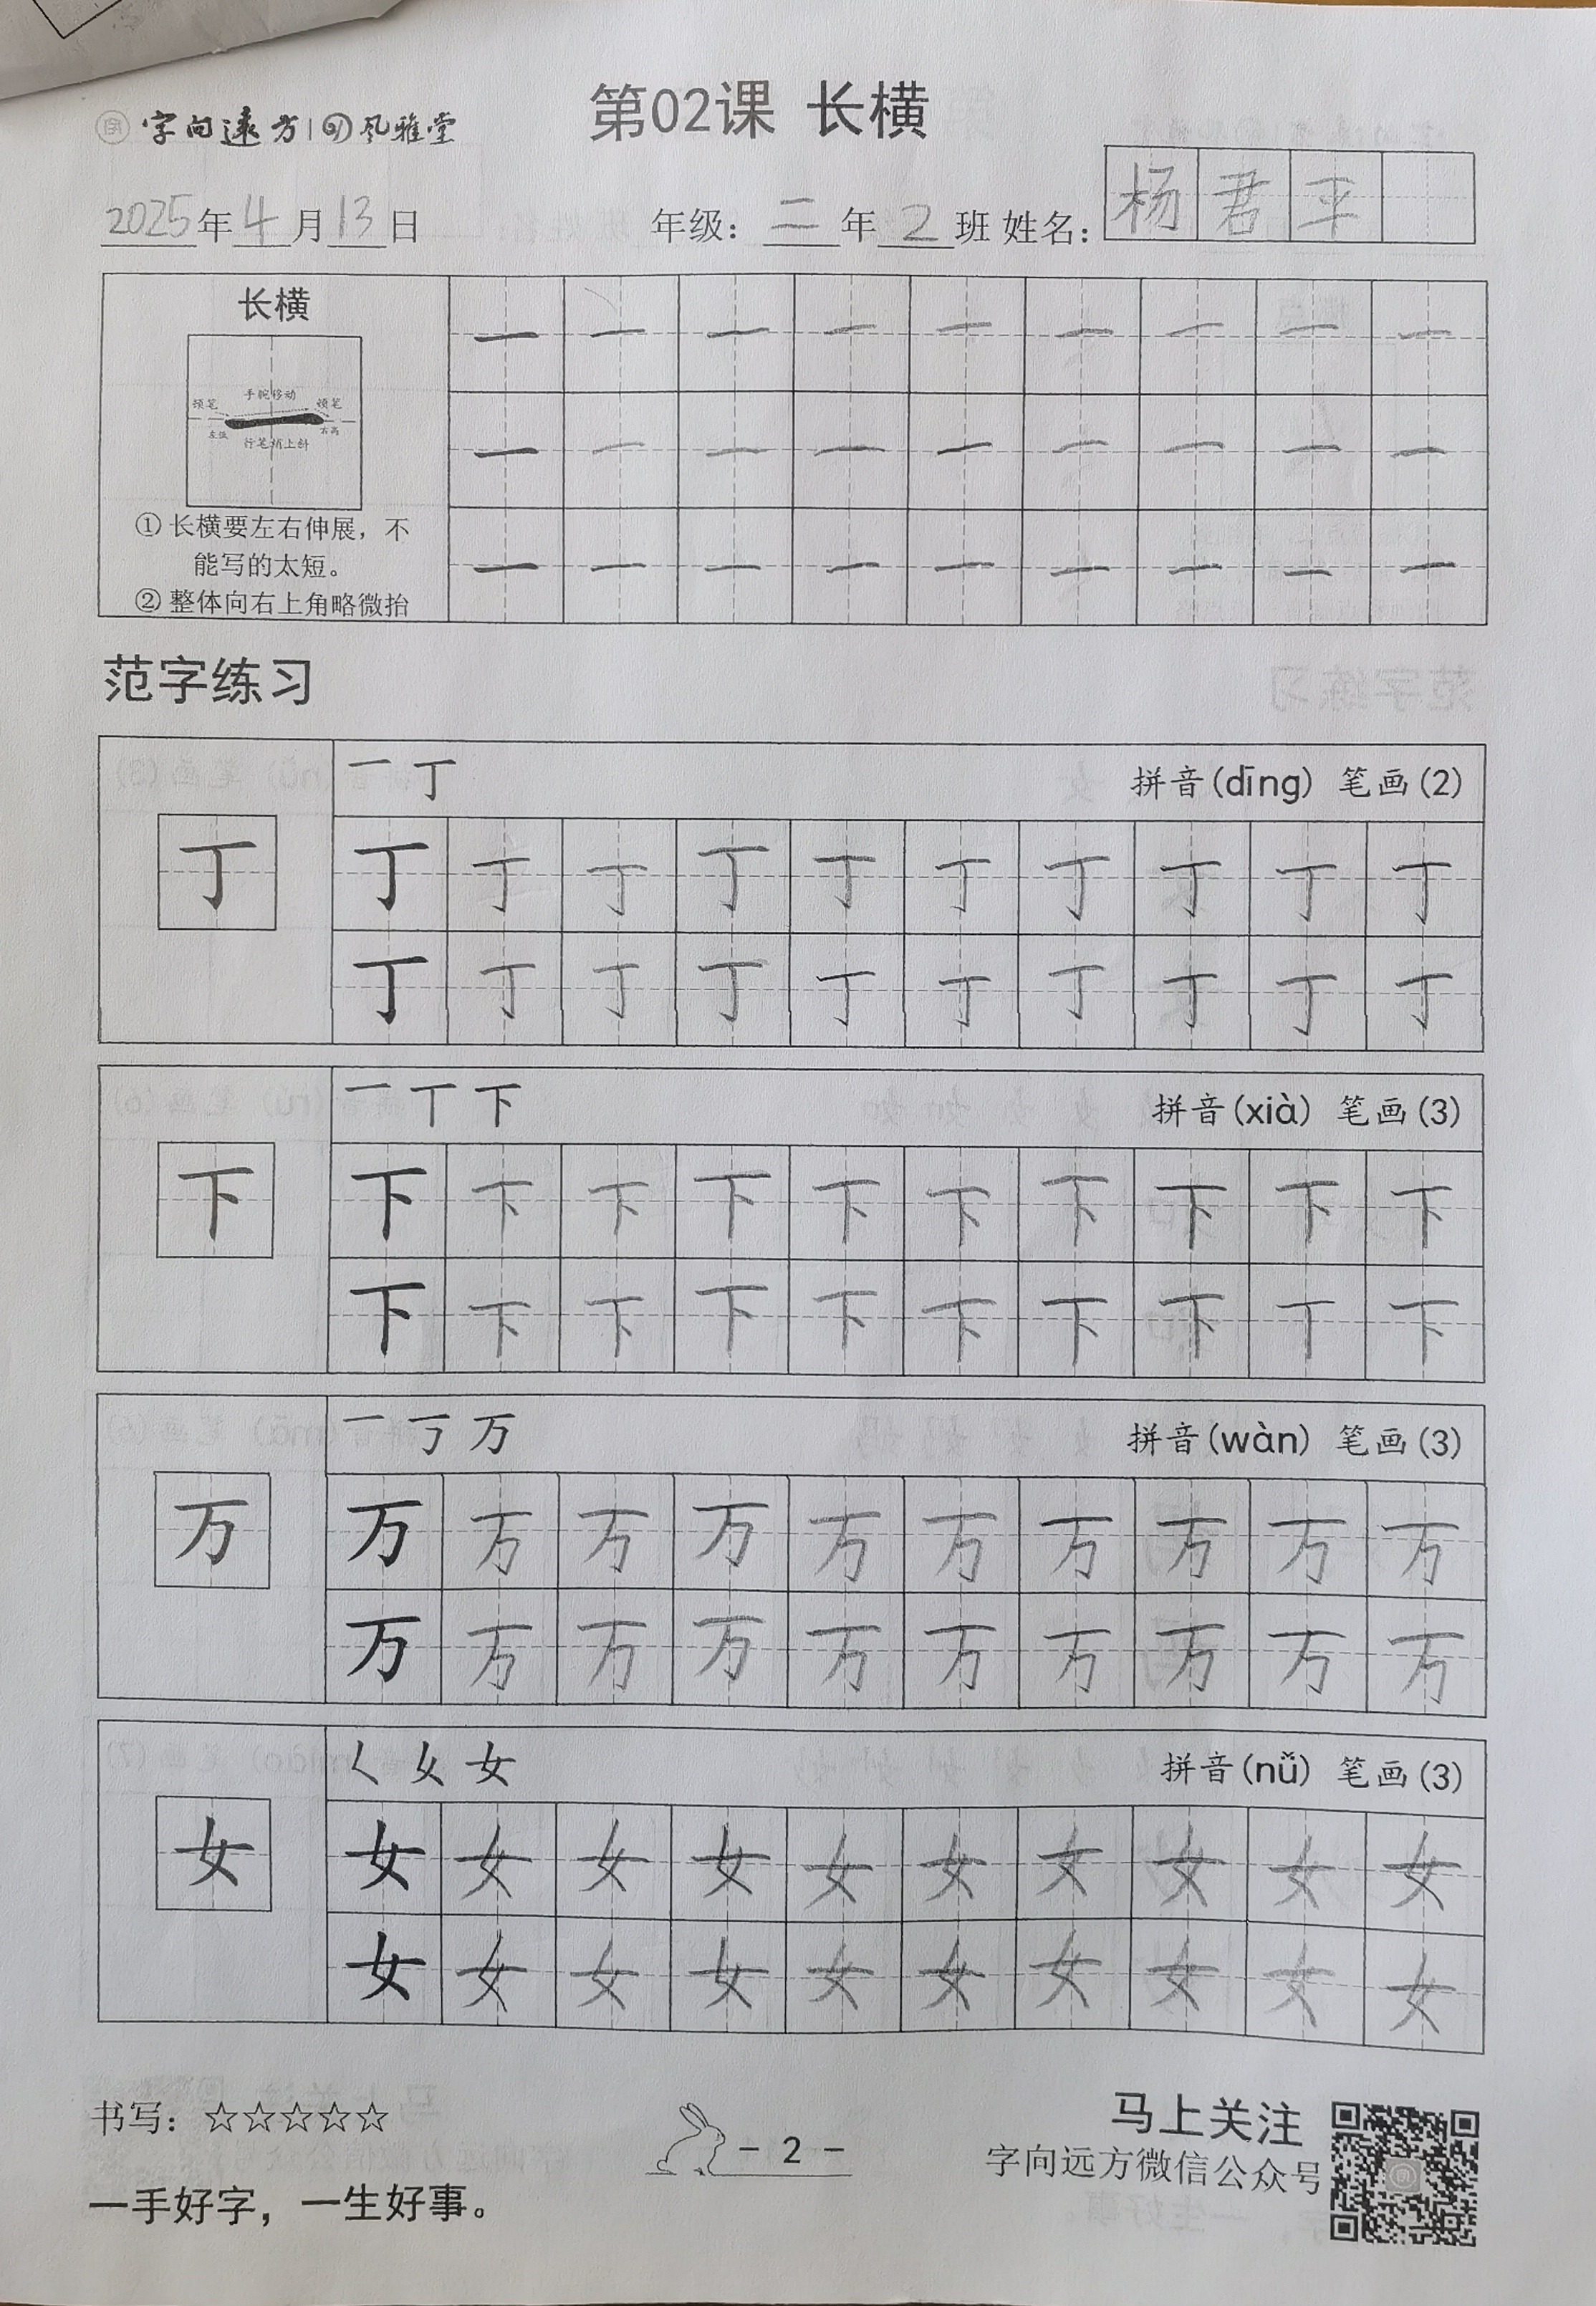 字向远方 | 风雅堂
第02课 长横
2025年4月13日 年级：二年2班 姓名：杨君平
长横
手腕移动
顿笔 顿笔
左低 右高
行笔稍上斜
① 长横要左右伸展，不
能写的太短。
② 整体向右上角略微抬
一 一 一 一 一 一 一 一 一
一 一 一 一 一 一 一 一 一
一 一 一 一 一 一 一 一 一
范字练习
一 丁 拼音(dīng) 笔画(2)
丁
丁 丁 丁 丁 丁 丁 丁 丁 丁 丁
丁 丁 丁 丁 丁 丁 丁 丁 丁 丁
一 丅 下 拼音(xià) 笔画(3)
下
下 下 下 下 下 下 下 下 下 下
下 下 下 下 下 下 下 下 丅 下
一 丂 万 拼音(wàn) 笔画(3)
万
万 万 万 万 万 万 万 万 万 万
万 万 万 万 万 万 万 万 万 万
𡿨 女 拼音(nǚ) 笔画(3)
女
女 女 女 女 女 女 女 女 女 女
女 女 女 女 女 女 女 女 女 女
书写：☆☆☆☆☆
一手好字，一生好事。
- 2 -
马上关注
字向远方微信公众号